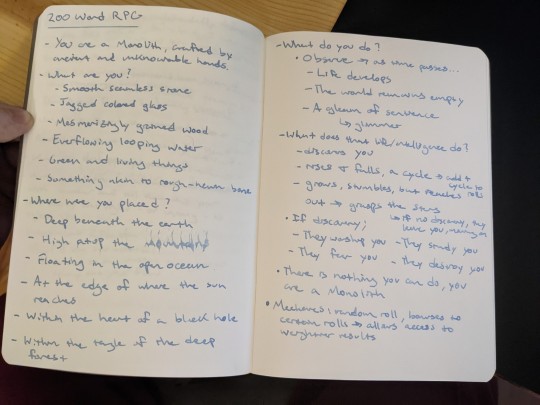 200 Word RPG
- You are a Monolith, crafted by
ancient and unknowable hands.
- What are you?
- Smooth seamless stone
- Jagged colored glass
- Mesmerizingly grained wood
- Everflowing looping water
- Green and living things
- Something akin to rough-hewn bone
- Where were you placed?
- Deep beneath the earth
- High atop the
- Floating in the open ocean
- At the edge of where the sun
reaches
- Within the heart of a black hole
- Within the tangle of the deep
forest
- What do you do?
• Observe → as time passes...
- Life develops
- The world remains empty
- A gleam of sentience
↳ glimmer
- What does that life/intelligence do?
- discovers you
- rises & falls, a cycle → add +
cycle to
rolls
- grows, stumbles, but reaches
out → grasps the stars
↳ if no discovery, they
leave you, moving on
• If discovery;
- They worship you - They study you
- They fear you - They destroy you
• There is nothing you can do, you
are a Monolith
• Mechanics: random roll, bonuses to
certain rolls → allows access to
weightier results